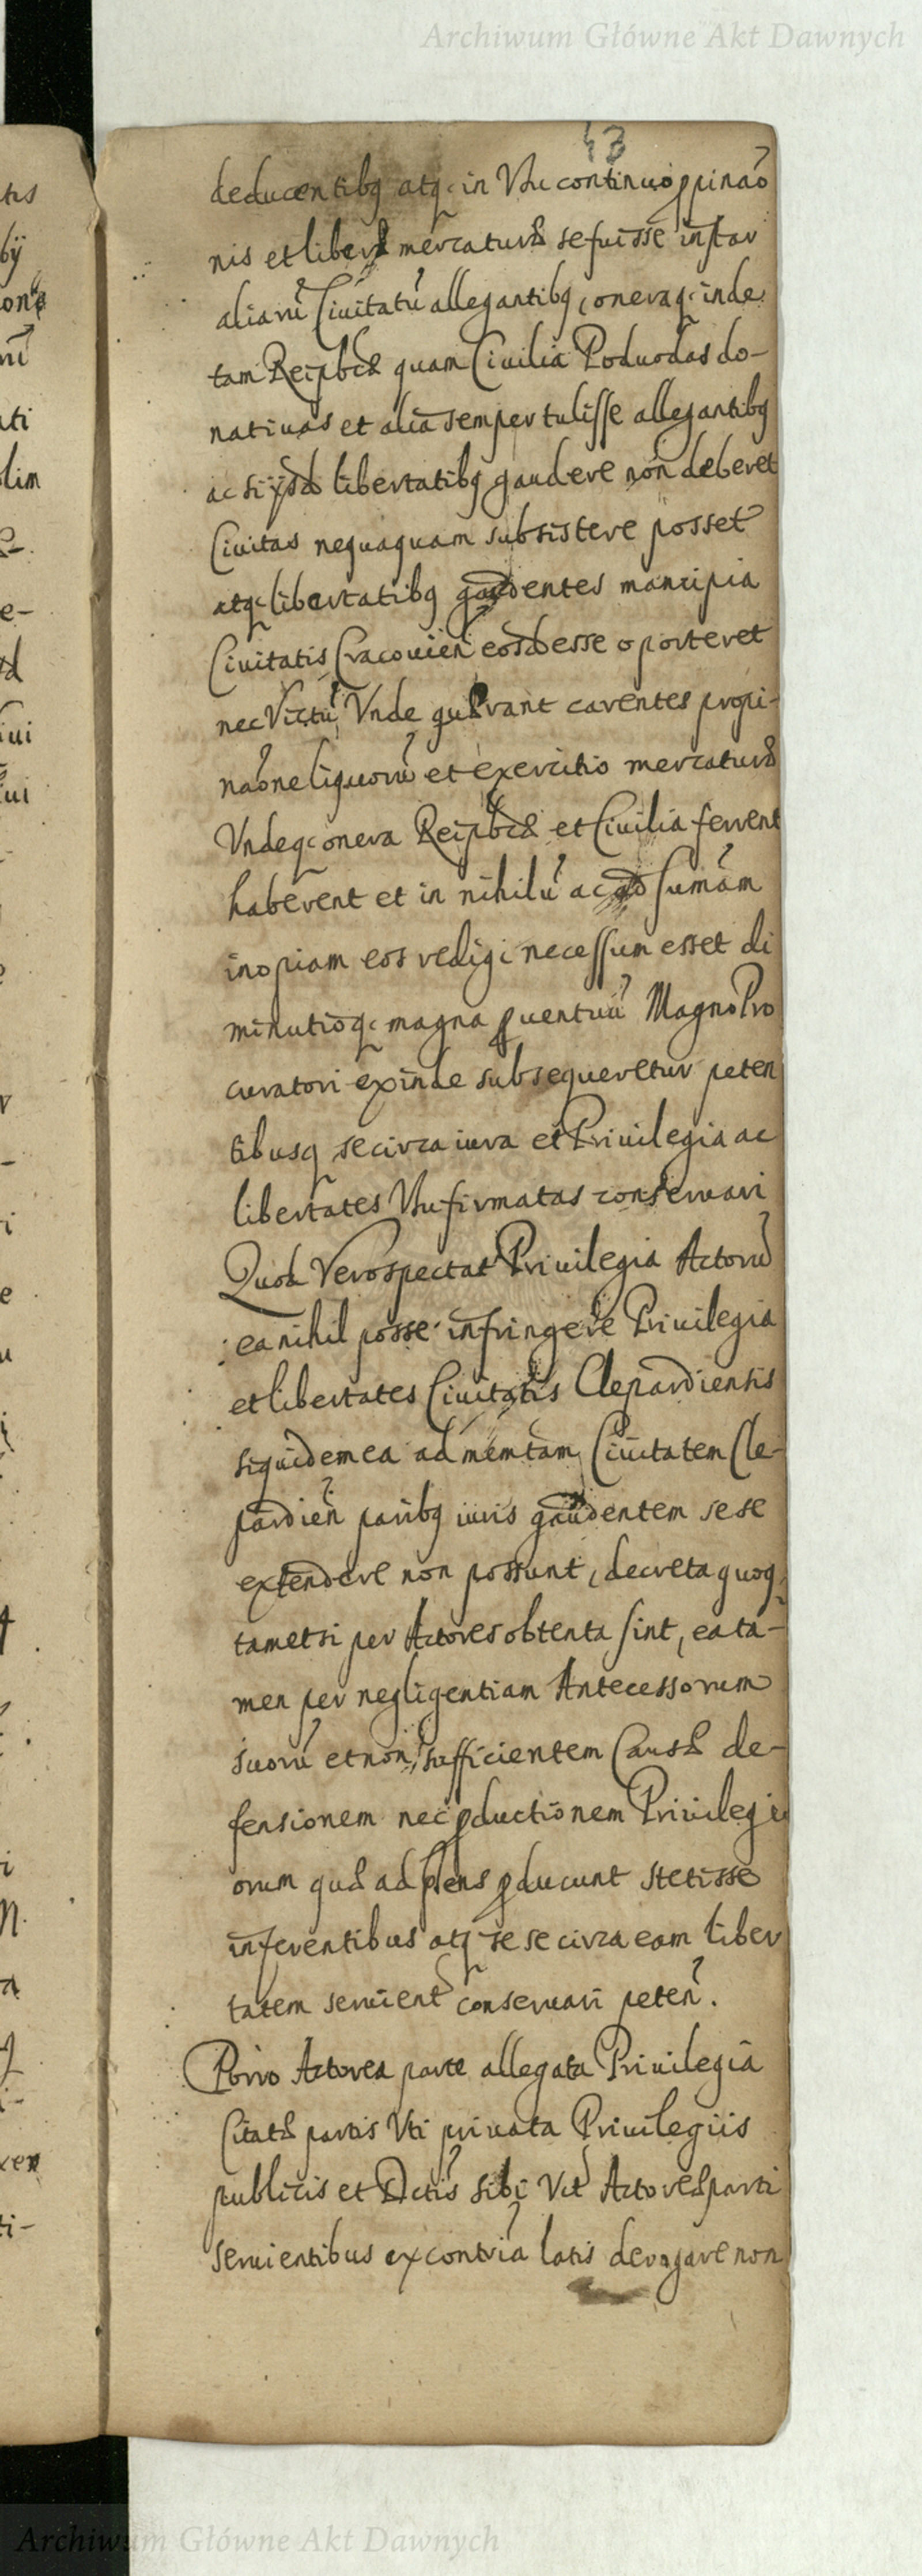 Archiwum Główne Akt Dawnych
43
deducentibq atq in Vsu continuo ppinaõ
nis et liberæ mercaturæ se fuisse instar
aliarũ Ciuitatũ allegantibq, oneraq inde
tam Reipbcæ quam Ciuilia Poduodas do-
natiuas et alia semper tulisse allegantibq
ac si ijsd libertatibq gaudere non deberet
Ciuitas nequaquam subsistere posset
atq libertatibq gaudentes mancipia
Ciuitatis Cracouien eosd esse oporteret
nec Victũ Vnde quærant carentes propi-
naõne liquorũ et exercitio mercaturæ
Vndeq onera Reipbcæ et Ciuilia ferrent
haberent et in nihilũ ac ad sumam
inopiam eos redigi necessum esset di
minutioq magna puentuũ Magno Pro
curatori exinde subsequeretur peten
tibusq se circa iura et Priuilegia ac
libertates Vsu firmatas conseruari
Quod Vero spectat Priuilegia Actorũ
ea nihil posse infringere Priuilegia
et libertates Ciuitatis Clepardiensis
siquidem ea ad memtam Ciuitatem Cle-
pardien paribq iuris gaudentem sese
extendere non possunt, decreta quoq
tametsi per Actores obtenta sint, ea ta-
men per negligentiam Antecessorum
suorũ et non sufficientem Causæ de-
fensionem nec pductionem Priuilegi
orum quæ ad pñens pducunt stetisse
inferentibus atq sese circa eam liber
tatem seruient conseruari peteñ.
Porro Actorea parte allegata Priuilegia
Citatæ partis Vti priuata Priuilegiis
publicis et Dctis sibi Vt Actoreæ parti
seruientibus ex contria latis derogare non
Archiwum Główne Akt Dawnych